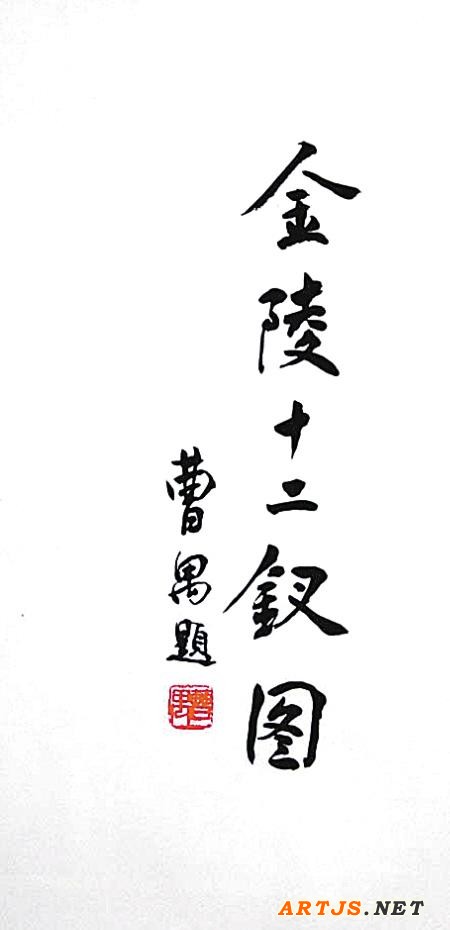 金陵十二钗图
曹禺題
ARTJS.NET